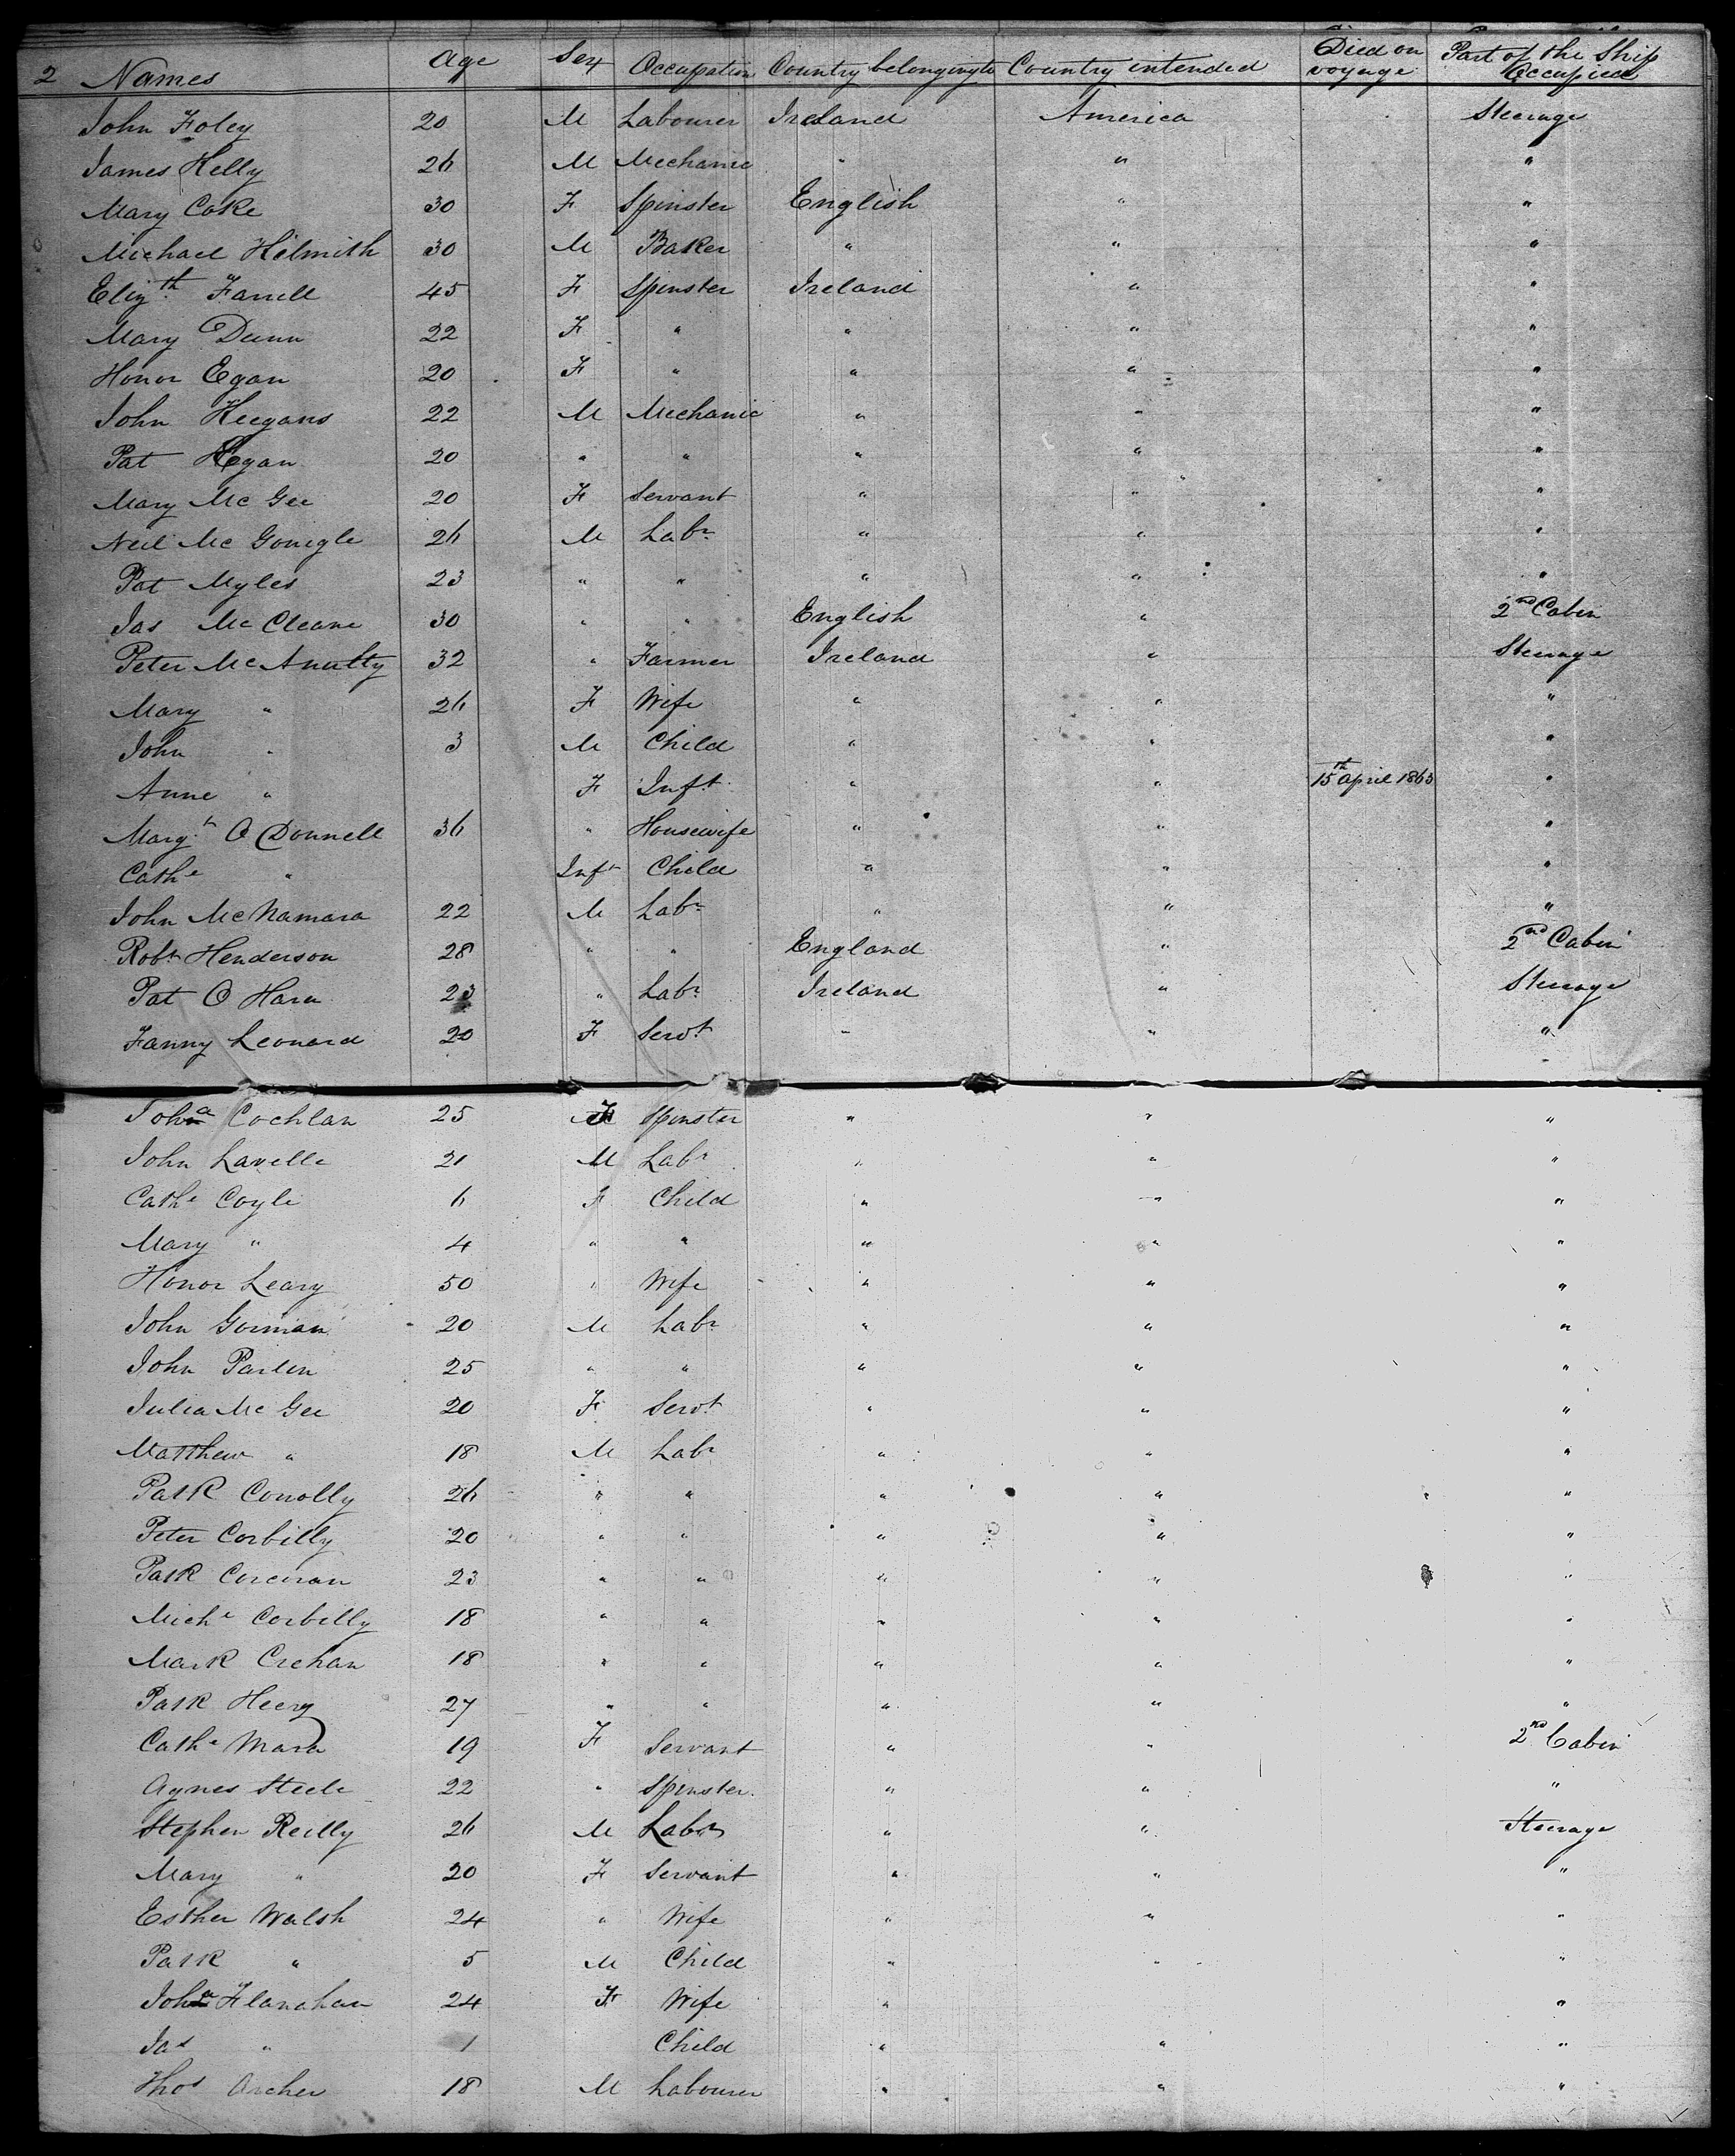 2 Names Age Sex Occupation Country belonging to Country intended Died on voyage Part of the Ship Occupied
John Foley 20 M Labourer Ireland America Steerage
James Kelly 26 M Mechanic " " "
Mary Coke 30 F Spinster English " "
Michael Helmith 30 M Baker " " "
Elizth Farrell 45 F Spinster Ireland " "
Mary Dunn 22 F " " " "
Honor Egan 20 F " " " "
John Keegans 22 M Mechanic " " "
Pat Egan 20 " " " " "
Mary Mc Gee 20 F Servant " " "
Neil Mc Gonigle 26 M Labr " " "
Pat Myles 23 " " " " "
Jas Mc Cleane 30 " " English " 2nd Cabin
Peter Mc Anulty 32 " Farmer Ireland " Steerage
Mary " 26 F Wife " " "
John " 3 M Child " " "
Anne " F Inft " " 15th April 1863 "
Margt O Donnell 36 " Housewife " " "
Cathe " Inft Child " " "
John Mc Namara 22 M Labr " " "
Robt Henderson 28 " " England " 2nd Cabin
Pat O Hara 23 " Labr Ireland " Steerage
Fanny Leonard 20 F Servt " " "
Joha Cochlan 25 F Spinster " " "
John Lavelle 21 M Labr " " "
Cathe Coyle 6 F Child " " "
Mary " 4 " " " " "
Honor Leary 50 " Wife " " "
John Gorman 20 M Labr " " "
John Parlen 25 " " " " "
Julia Mc Gee 20 F Servt " " "
Matthew " 18 M Labr " " "
Patk Conolly 26 " " " " "
Peter Corbilly 20 " " " " "
Patk Corcoran 23 " " " " "
Michl Corbilly 18 " " " " "
Mark Crehan 18 " " " " "
Patk Heery 27 " " " " "
Cathe Mara 19 F Servant " " 2nd Cabin
Agnes Steele 22 " Spinster " " "
Stephen Reilly 26 M Labr " " Steerage
Mary " 20 F Servant " " "
Esther Walsh 24 " Wife " " "
Patk " 5 M Child " " "
Joha Flanahan 24 F Wife " "
Jas " 1 Child " " "
Thos Archer 18 M Labourer " " "